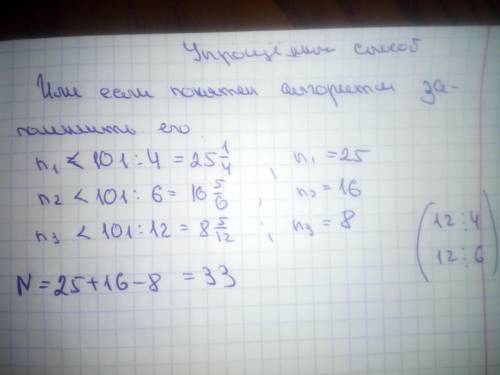 Упрощённый способ
Или если понятен алгоритм за-
помнить его.
n₁ < 101:4 = 25 1/4 , n₁ = 25
n₂ < 101:6 = 16 5/6 , n₂ = 16
n₃ < 101:12 = 8 5/12 ; n₃ = 8
(12⋮4
12⋮6)
N = 25+16-8 = 33